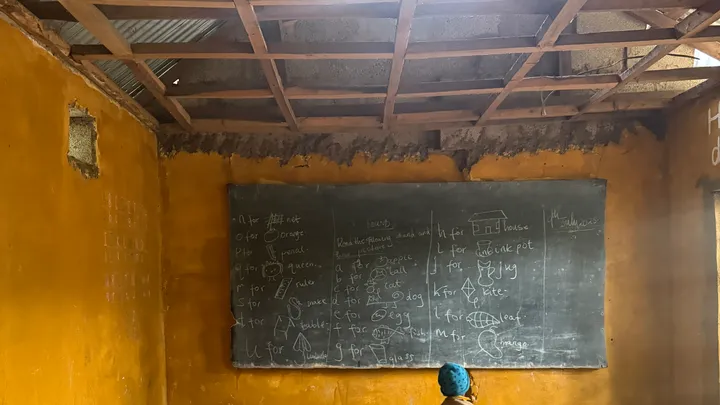 n for net
o for orange
P for pencil
q for queen
r for ruler
S for snake
t for table
U for umbrella
Read the following
a for apple
b for ball
c for cat
d for dog
e for egg
f for fish
g for glass
h for house
i for ink pot
j for jug
k for kite
l for leaf
m for mango